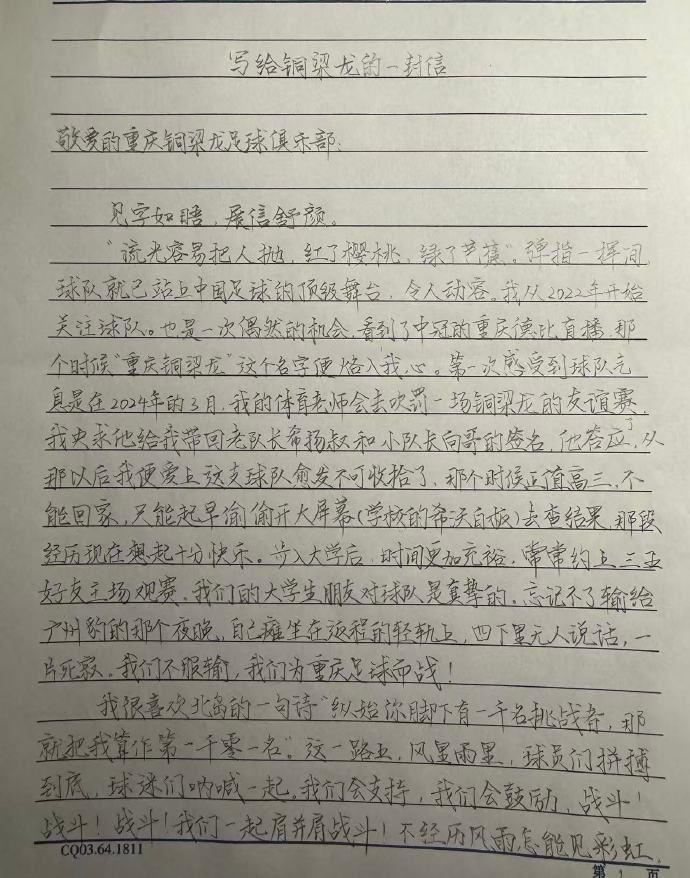 写给铜梁龙的一封信
敬爱的重庆铜梁龙足球俱乐部:
见字如晤，展信舒颜。
“流光容易把人抛，红了樱桃，绿了芭蕉”。弹指一挥间，
球队就已站上中国足球的顶级舞台，令人动容。我从2022年开始
关注球队。也是一次偶然的机会，看到了中冠的重庆德比直播，那
个时候“重庆铜梁龙”这个名字便烙入我心。第一次感受到球队气
息是在2024年的3月，我的体育老师会去吹罚一场铜梁龙的友谊赛，
我央求他给我带回老队长希扬叔和小队长向哥的签名，他答应了，从
那以后我便爱上这支球队愈发不可收拾了，那个时候正值高三，不
能回家，只能起早偷偷开大屏幕(学校的希沃白板)去查结果，那段
经历现在想起十分快乐。步入大学后，时间更加充裕，常常约上三五
好友主场观赛，我们的大学生朋友对球队是真挚的。忘记不了输给
广州豹的那个夜晚，自己瘫坐在返程的轻轨上，四下里无人说话，一
片死寂。我们不服输，我们为重庆足球而战！
我很喜欢北岛的一句诗“纵始你脚下有一千名挑战者，那
就把我算作第一千零一名”。这一路上，风里雨里，球员们拼搏
到底，球迷们呐喊一起。我们会支持，我们会鼓励，战斗！
战斗！战斗！我们一起肩并肩战斗！不经历风雨怎能见彩虹，
CQ03.64.1811
第 1 页